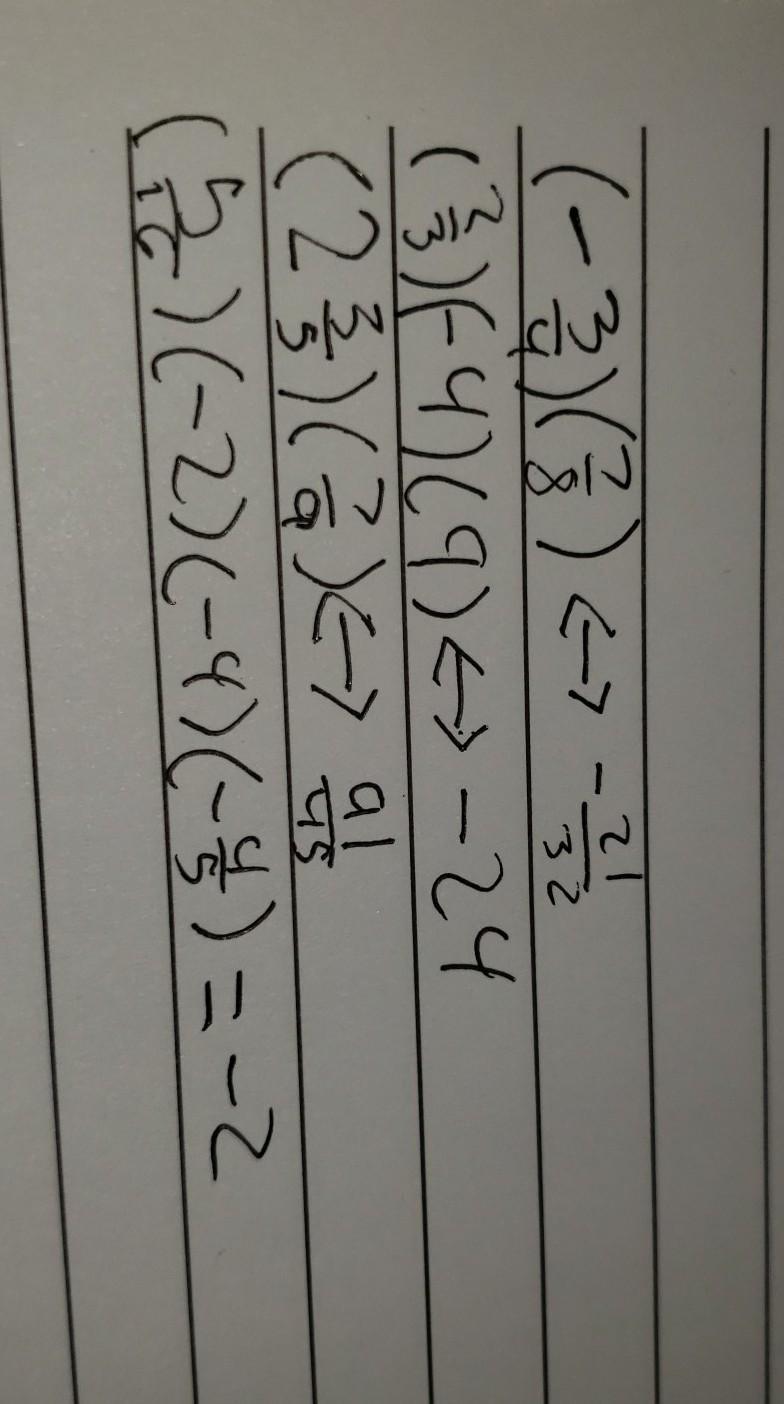 (-3/4)(7/8) ↔ -21/32
(2/3)(-4)(9) ↔ -24
(2 3/5)(7/9) ↔ 91/45
(5/16)(-2)(-4)(-4/5) = -2